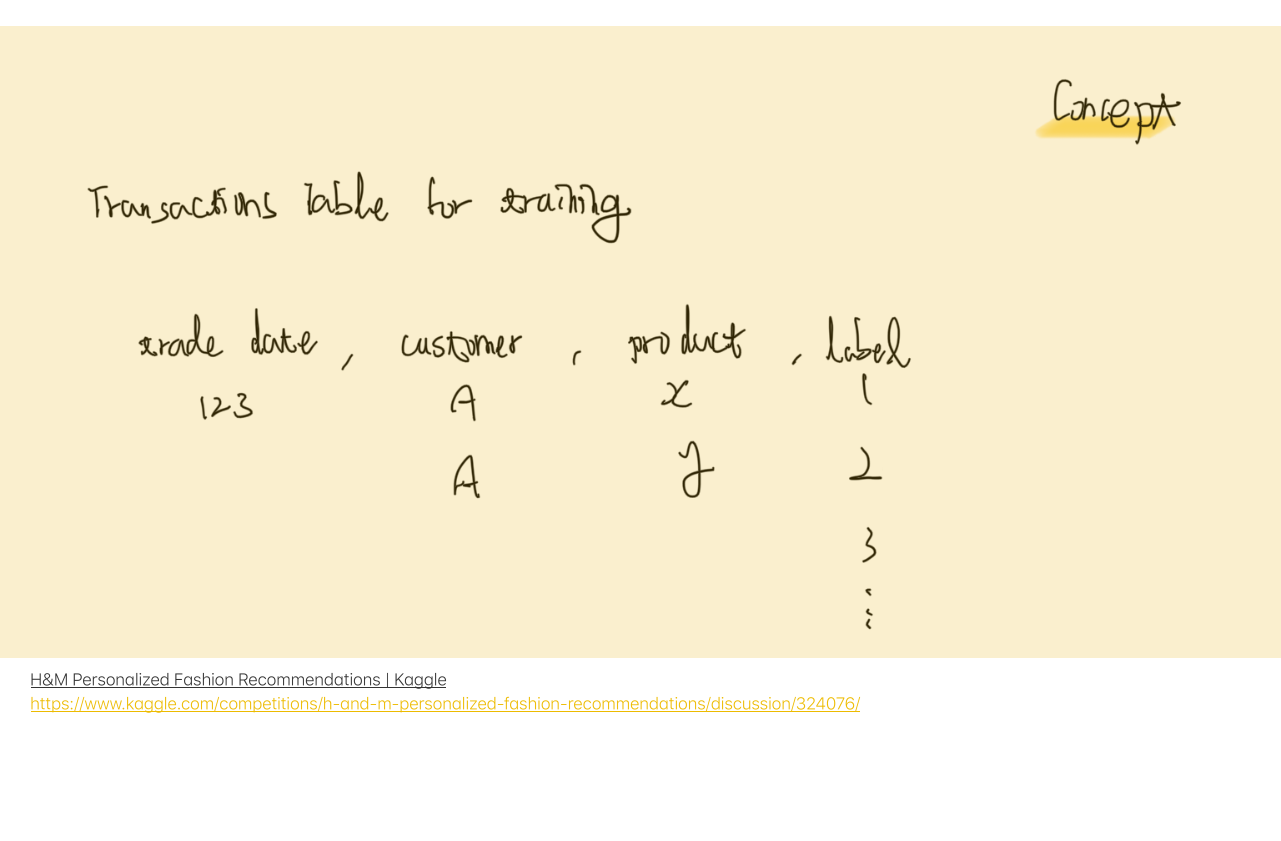 Concept
Transactions Table for training
trade date, customer, product, label
123 A x 1
A y 2
3
⋮
H&M Personalized Fashion Recommendations | Kaggle
https://www.kaggle.com/competitions/h-and-m-personalized-fashion-recommendations/discussion/324076/